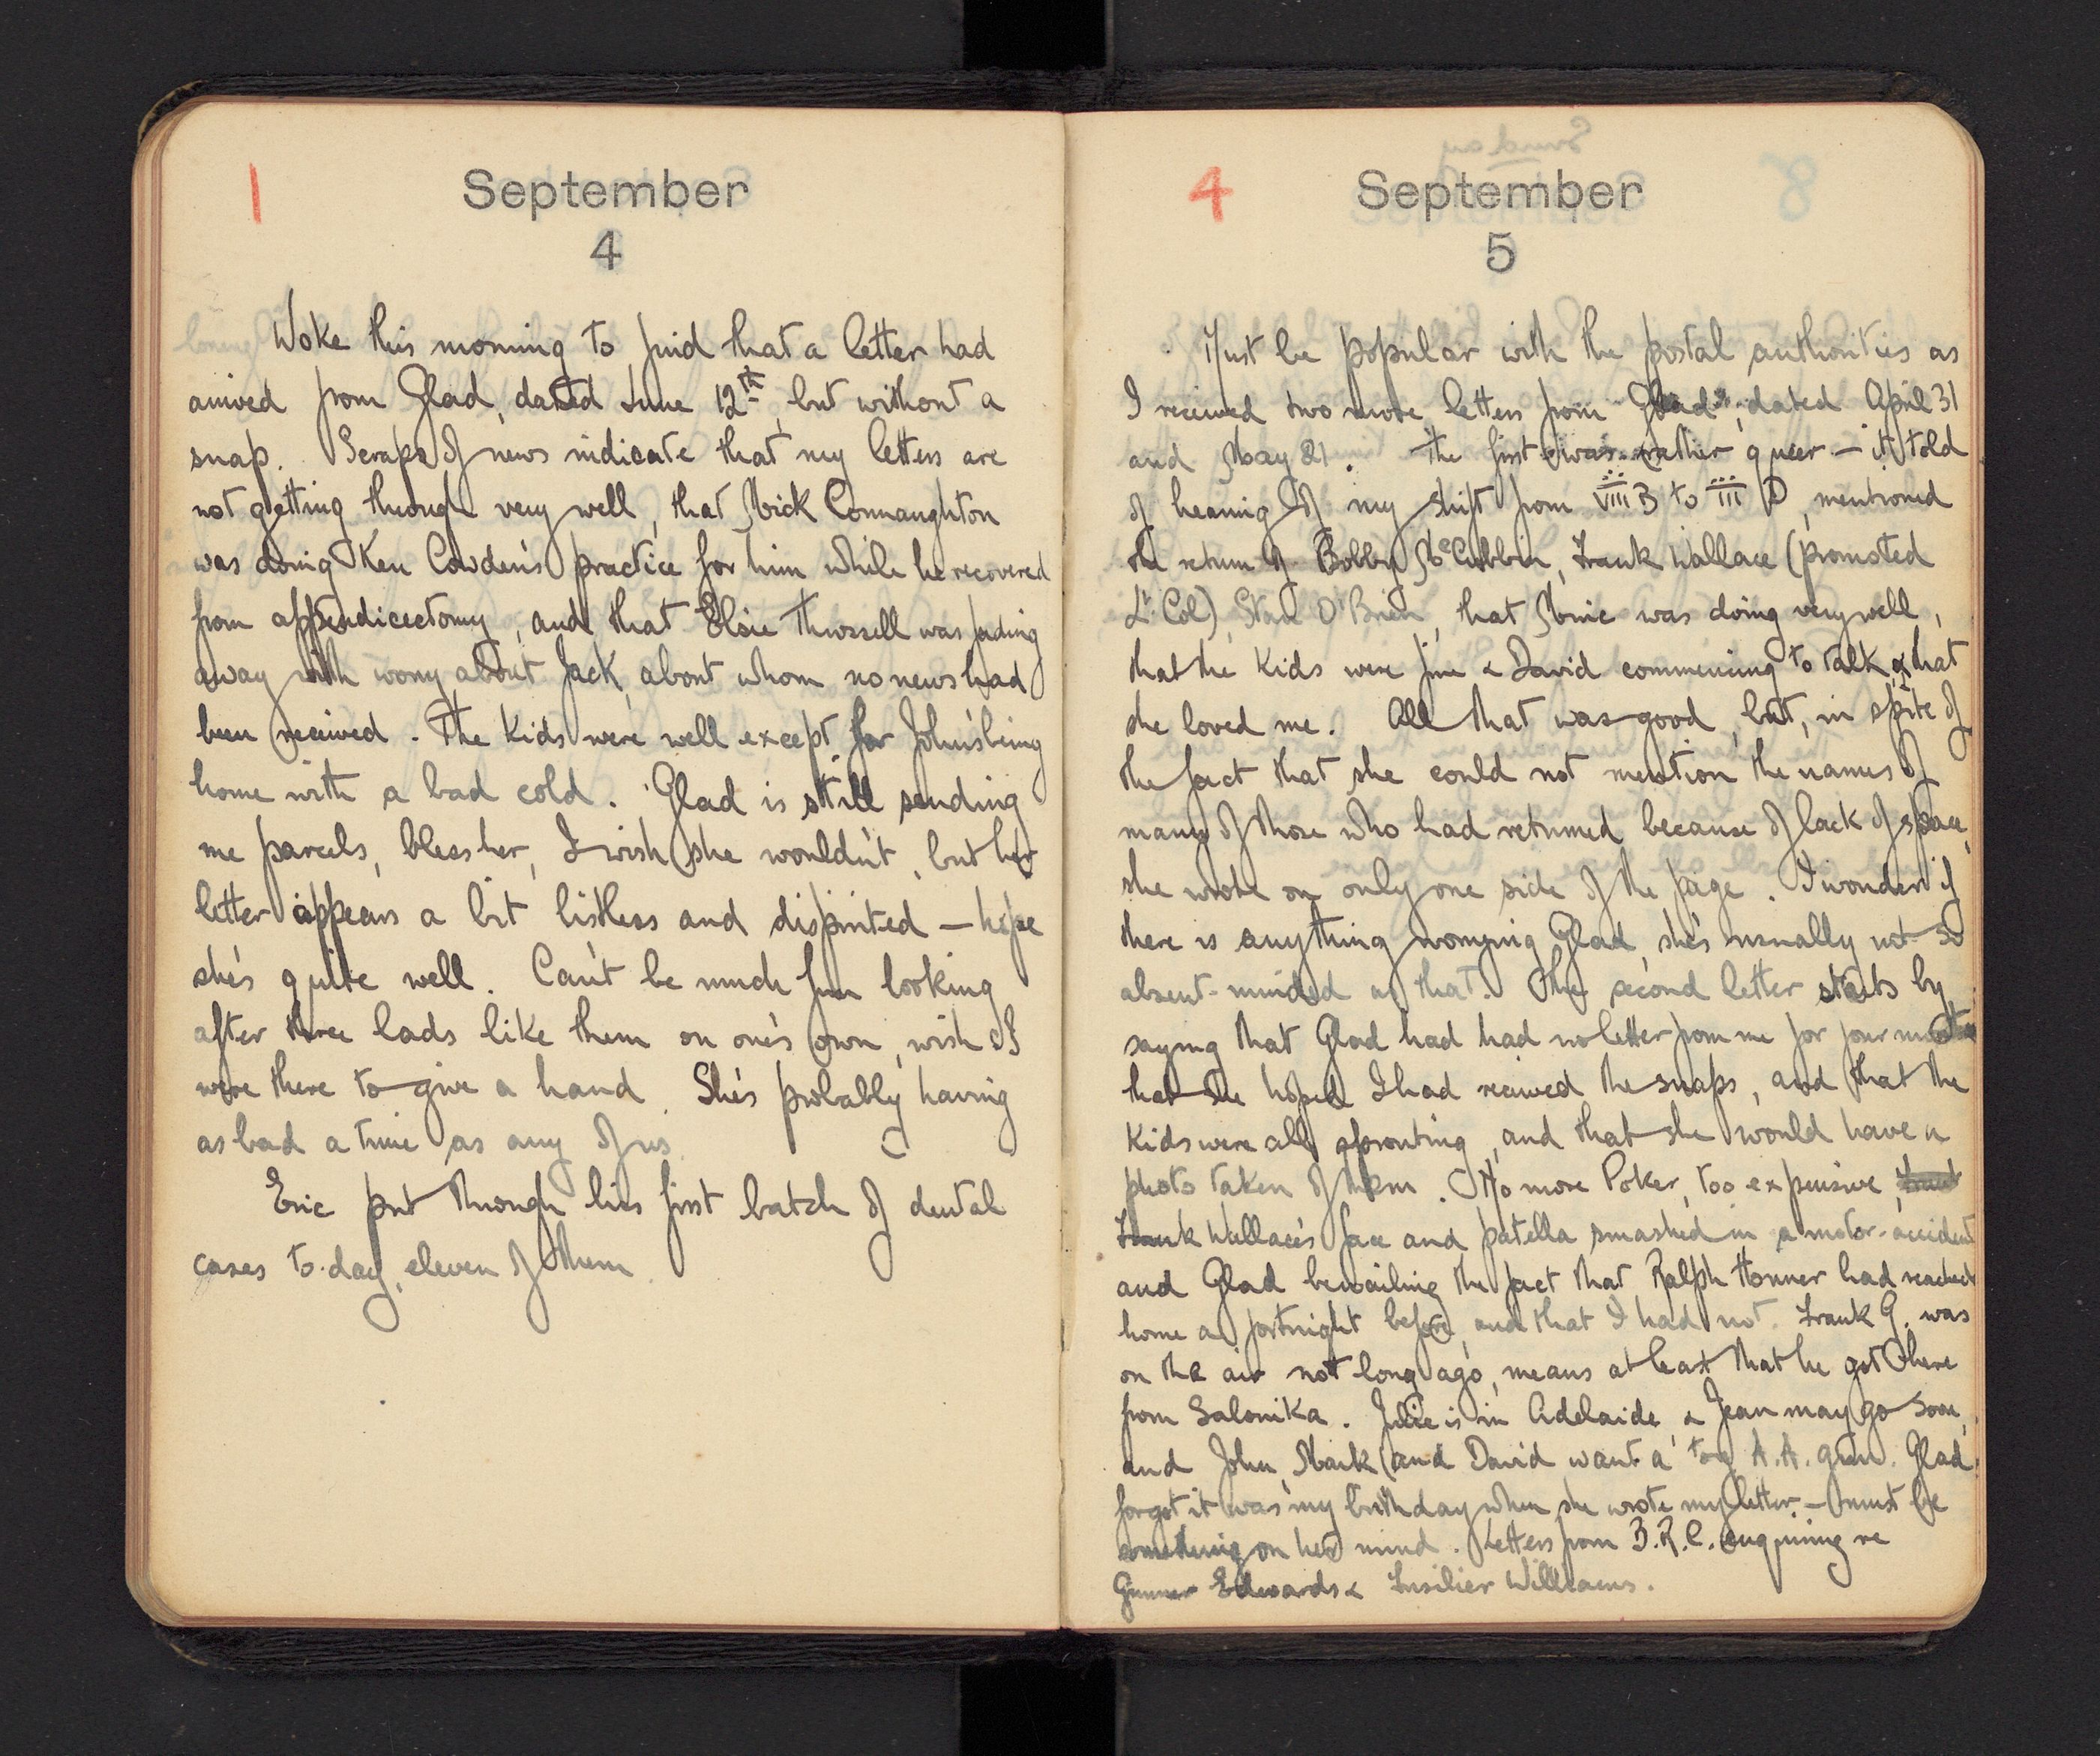 1
September
4
Woke this morning to find that a letter had
arrived from Glad, dated June 12th, but without a
snap. Scraps of news indicate that my letters are
not getting through very well, that Mick Connaughton
was doing Ken Cowden's practice for him while he recovered
from appendicectomy, and that Elsie Thurssell was fading
away with worry about Jack, about whom no news had
been received. The kids were well except for John's being
home with a bad cold. Glad is still sending
me parcels, bless her, I wish she wouldn't, but her
letter appears a bit listless and dispirited – hope
she's quite well. Can't be much fun looking
after three lads like them on one's own, wish I
were there to give a hand. She's probably having
as bad a time as any of us.
Eric put through his first batch of dental
cases to-day, eleven of them.
4
September
5
Must be popular with the postal authorities as
I received two more letters from Glad, dated April 31
and May 21. The first was rather queer – it told
of hearing of my shift from VIII B to III D, mentioned
the return of Bobby McCubbin, Frank Wallace (promoted
Lt Col), Stan O'Brien, that Monic was doing very well,
that the kids were fine & David commencing to talk, & that
she loved me. All that was good, but, in spite of
the fact that she could not mention the names of
many of those who had returned because of lack of space,
she wrote on only one side of the page. I wonder if
there is anything worrying Glad, she's usually not so
absent-minded as that. The second letter starts by
saying that Glad had had no letter from me for four months
that she hoped I had received the snaps, and that the
kids were all sprouting, and that she would have a
photo taken of them. No more Poker, too expensive,
Frank Wallace's face and patella smashed in a motor-accident
and Glad bewailing the fact that Ralph Honner had reached
home a fortnight before, and that I had not. Frank G. was
on the air not long ago, means at least that he got there
from Salonika. Julie is in Adelaide, & Jean may go soon,
and John, Mark and David want a toy A.A. gun. Glad
forgot it was my birthday when she wrote my letter – must be
something on her mind. Letters from B.R.C. enquiring re
Gunner Edwards & Fusilier Williams.